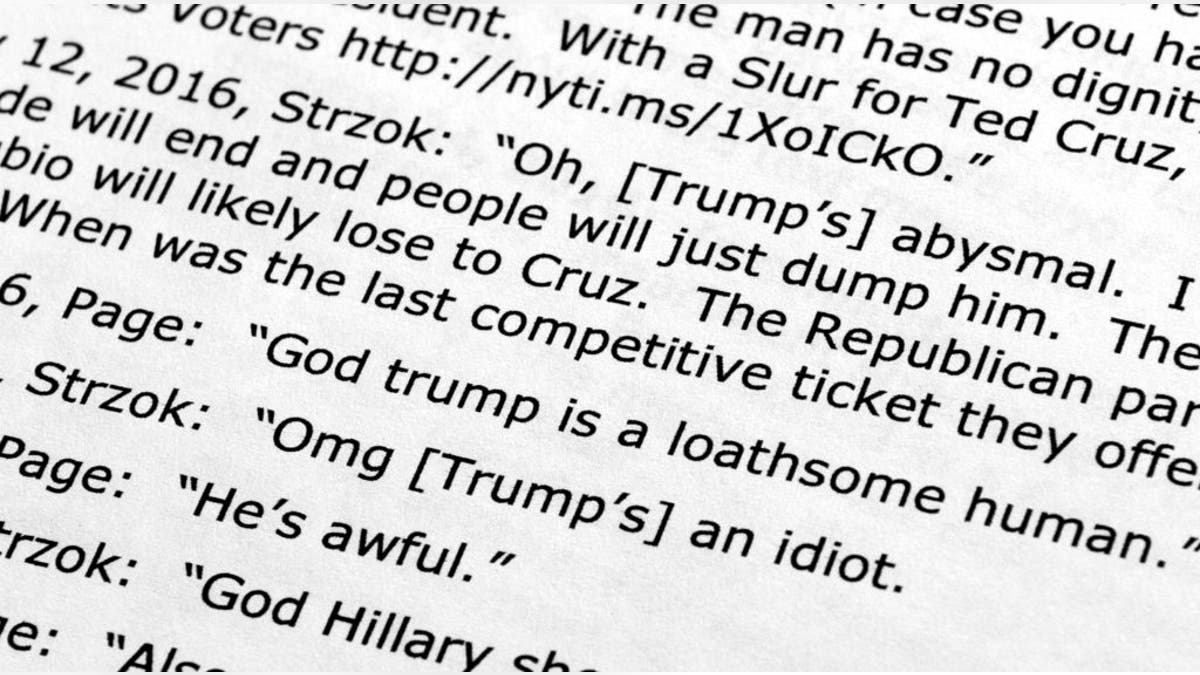 sident. The man has no dignit
voters http://nyti.ms/1XoICkO.” With a Slur for Ted Cruz,
12, 2016, Strzok: “Oh, [Trump’s] abysmal. I
de will end and people will just dump him. The
bio will likely lose to Cruz. The Republican par
When was the last competitive ticket they offe
6, Page: “God trump is a loathsome human.”
, Strzok: “Omg [Trump’s] an idiot.
Page: “He’s awful.”
trzok: “God Hillary sho
ge: “Also